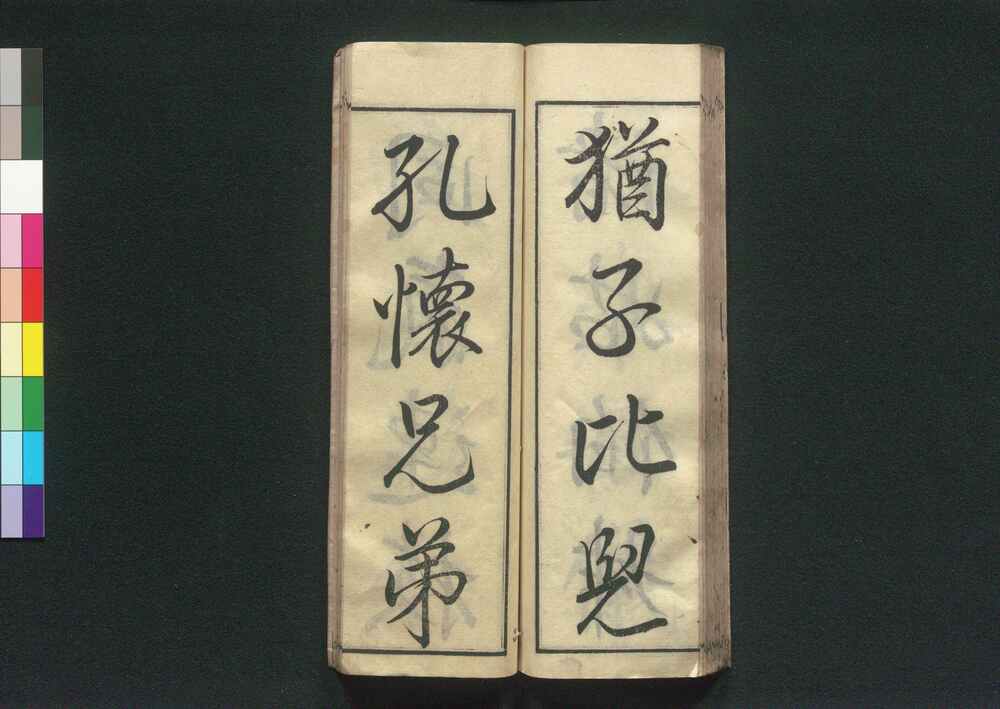 猶子比兒
孔懷兄弟